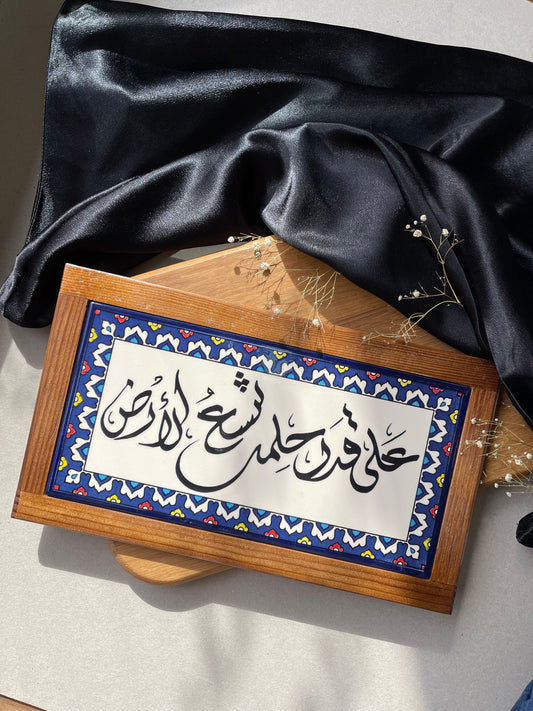 على قدر حلمك تتسع الأرض